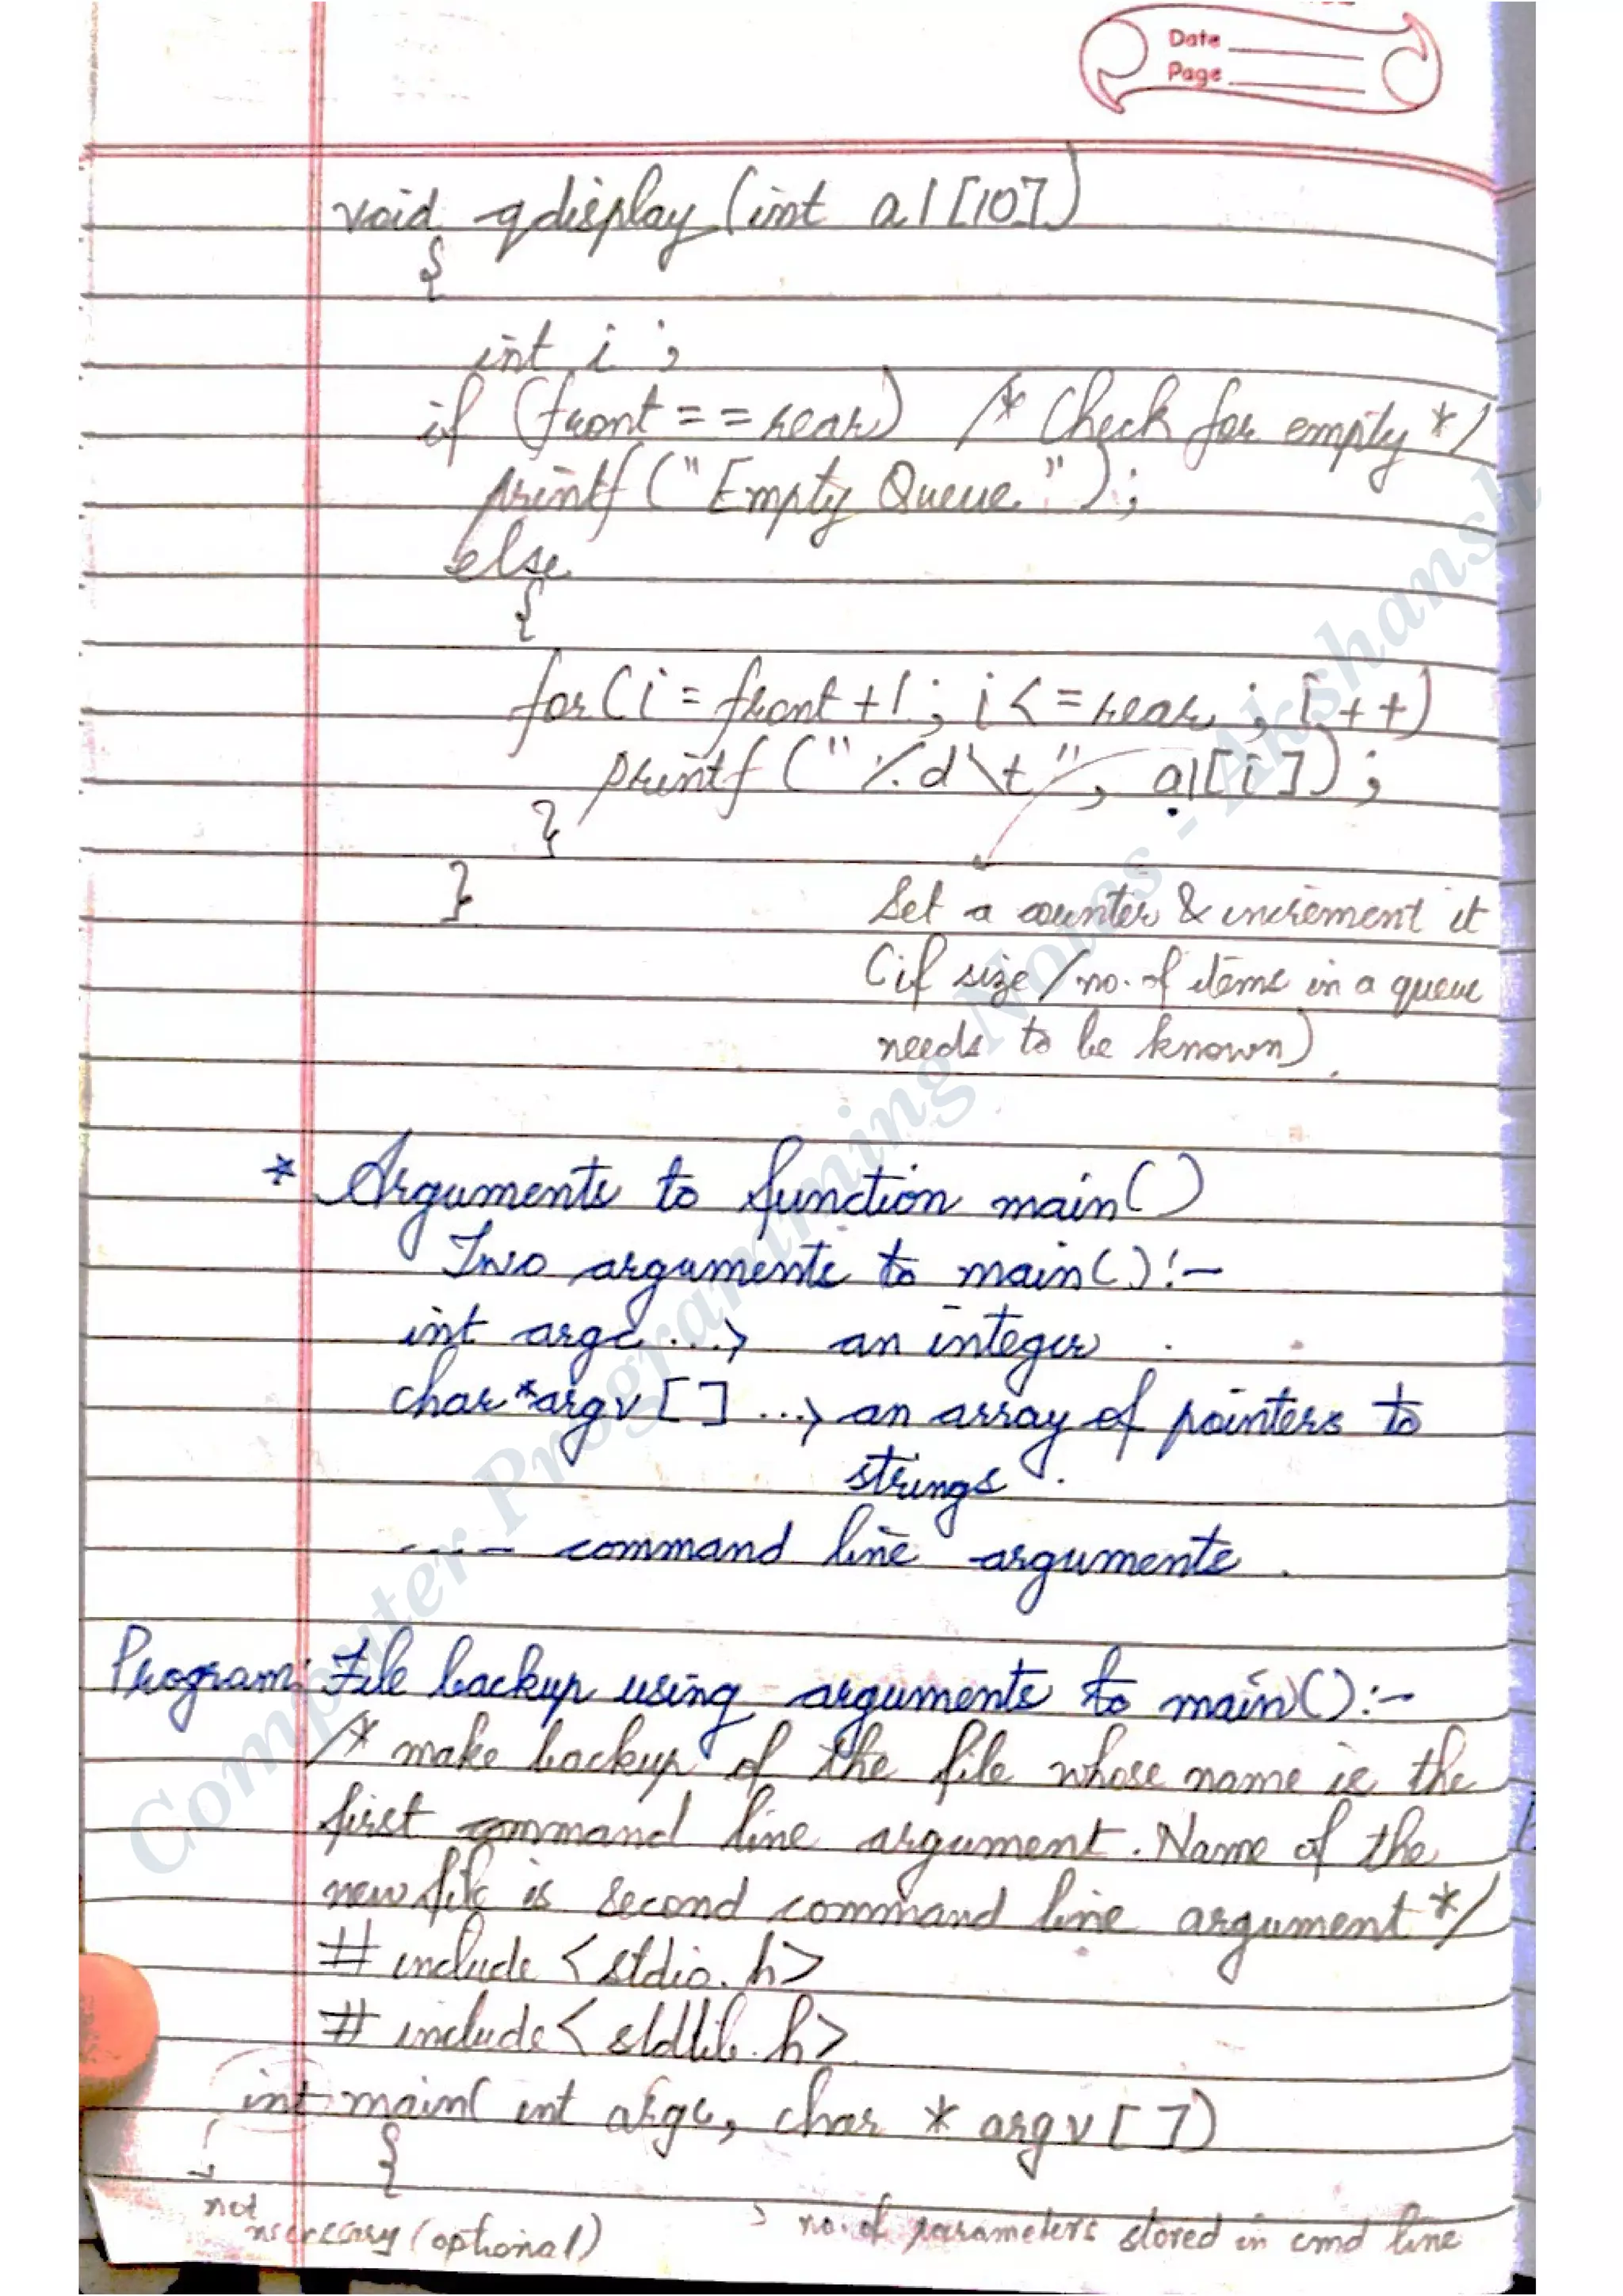 Date
Page
void qdisplay (int a1[10])
{
int i ;
if (front = = rear) /* Check for empty */
printf ("Empty Queue");
else
{
for (i = front +1 ; i < = rear ; i ++)
printf ("%d\t", a1[i]);
}
}
Set a counter & increment it
(if size / no. of items in a queue
needs to be known)
* Arguments to function main()
Two arguments to main() :-
int argc ...> an integer
char *argv [ ] ...> an array of pointers to
strings.
---- command line arguments.
Program: File backup using arguments to main() :-
/* make backup of the file whose name is the
first command line argument. Name of the
new file is second command line argument */
# include <stdio.h>
# include <stdlib.h>
int main( int argc, char * argv [ ])
{
not
necessary (optional)
no. of parameters stored in cmd line
Computer Programming Notes - Akshansh